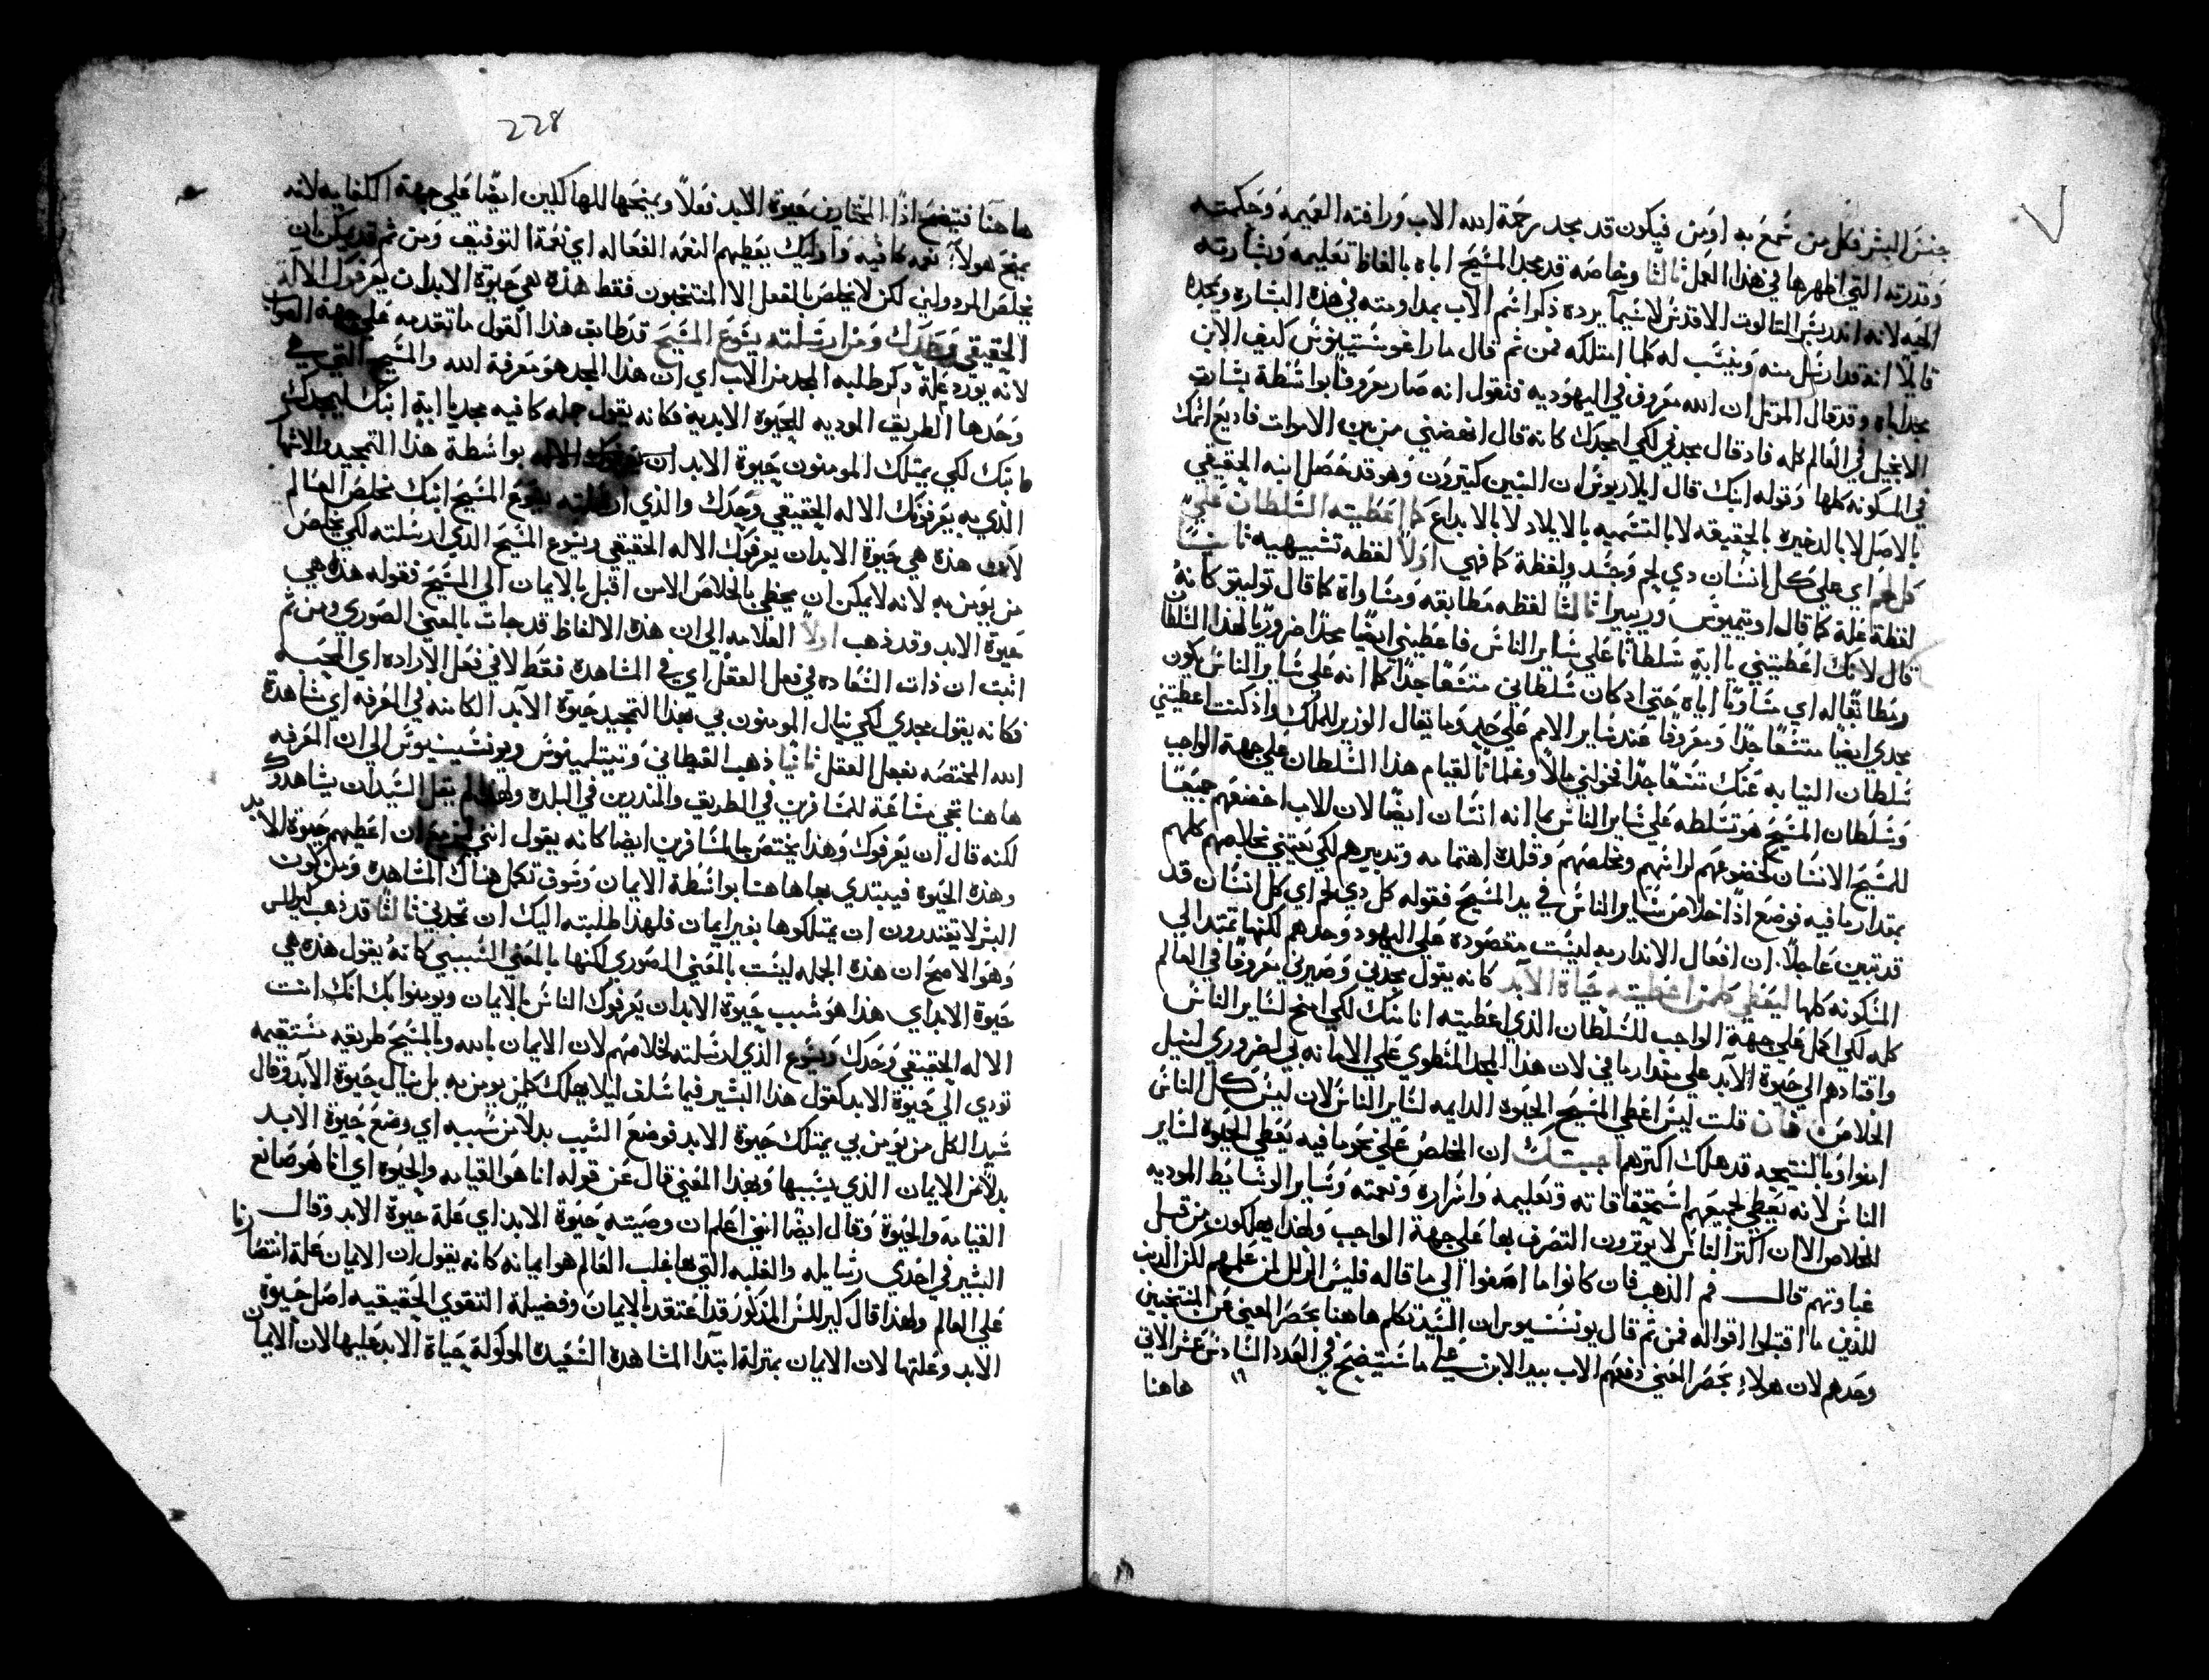 جنس البشر فكل من سمع به اومن فيكون قد مجد رحمة الله الاب ورافته العميمه وحكمته
وقدرته التي اظهرها في هذا العمل ثالثا وبخاصه قد مجد المسيح اباه بالفاظ تعليمه وبشارته
الحيه لانه انذر بسر الثالوت الاقدس لاسيما يرده ذكر اسم الاب بمداومته في هذه البشاره ويمجده
قايلا انه قد ارسل منه وينسب له كلما امتلكه فمن ثم قال ماراغوستينوس كيف الابن
مجد اباه وقد قال المرتل ان الله معروف في اليهوديه فنقول انه صار معروفا بواسطة بشارة
الانجيل في العالم كله فاد قال مجدني لكي امجدك كانه قال انهضني من بين الاموات فاديع اسمك
في المسكونه كلها وقوله ابنك قال ايلاريوس ان البنين كتيرون وهو قد خصل ابنه الحقيقي
بالاصل لا بالدخيره بالحقيقه لا بالتسميه بالايلاد لا بالابداع كما اعطيته السلطان علي
كل لحم اي علي كل انسان دي لحم وجسد ولفظة كما فهي اولا لفظه تشبيهيه ثانيا
لفظة علة كما قال اوتيميوس وريبيرا ثالثا لفظه مطابقه ومساواة كما قال توليتو كانه
قال لانك اعطيتني يا ابة سلطانا علي ساير الناس فاعطيني ايضا مجدا ضروريا لهذا السلطان
ومطابقا له اي مساويا اياه حتي اد كان سلطاني متسعا جدا كما انه علي ساير الناس يكون
مجدي ايضا متسعا جدا ومعروفا عند ساير الامم علي حد وما يقال الوزير للملك واذ كنت اعطيتني
سلطان النيابه عنك متسعا جدا فخولني مالا وغلمانا لقيام هذا السلطان علي جهة الواجب
وسلطان المسيح هو تسلطه علي ساير الناس بما انه انسان ايضا لان الاب اخضعهم جميعا
للمسيح الانسان كخضوعهم لراسهم ومخلصهم وقلده اهتمامه وتدبيرهم لكي يعتني بخلاصهم كلهم
بمقدار ما فيه فوضع اذا خلاص ساير الناس في يد المسيح فقوله كل دي لحم اي كل انسان قد
قد تبين عاجلا ان افعال الاندار به ليست مقصوده علي اليهود وحدهم لكنها تمتد الي
المسكونه كلها ليعطي كلمن اعطيته حياة الابد كانه يقول مجدني وصيرني معروفا في العالم
كله لكي اكمل علي جهة الواجب للسلطان الذي اعطيته انا منك لكي امنح لساير الناس
واقتادهم الي حيوة الابد علي مقدار ما في لان هذا المجد المنطوي علي الامانه بي لضروري لنيل
الخلاص فان قلت ليس اعطي المسيح الحيوه الدايمه لساير الناس لان ليس كل الناس
امنوا وبالنتيجه قد هلك اكترهم اجبتك ان المخلص علي نحو ما فيه يعطي الحيوة لساير
الناس لانه يعطي لجميعهم استحقاقاته وتعليمه واسراره ونعمته وساير الوسايط الموديه
للخلاص الا ان اكتر الناس لا يوترون التصرف بها علي جهة الواجب ولهذا يهلكون من قبل
غباوتهم قال فم الذهب فان كانوا ما اصغوا الي ما قاله فليس الزلل لمن علمهم لكن الذين
للذين ما اقتبلوا اقواله فمن ثم قال يونسنيوس ان السيد تكلم هاهنا بحصر المعني عن المنتخبين
وحدهم لان هولاء بحصر المعني دفعهم الاب بيد الابن علي ما سيتضح في العدد السادس عشر الاتي
١٦
هاهنا
228
هاهنا فيتضح اذا المختارين حيوة الابد فعلا ويمنحها للهالكين ايضا علي جهة الكفايه لانه
يمنح هولاء نعمه كافيه واوليك يعطيهم النعمه الفعاله اي نعمة التوفيق ومن ثم قد يمكن ان
يخلص المردولين لكن لا يخلص بالفعل الا المنتخبون فقط هذه هي حيوة الابد ان يعرفوك الاله
الحقيقي وحدك ومن ارسلته يسوع المسيح قد طابق هذا القول ما تقدمه علي جهة الصواب
لانه يورد علة دكر طلبه المجد من الاب اي ان هذا المجد هو معرفة الله والمسيح التي هي
وحدها الطريق الموديه للحيوة الابديه فكانه يقول جمله كافيه مجد يا ابة ابنك ليمجدك
ابنك لكي يمتلك المومنون حيوة الابد ان يعرفوك الاله بواسطة هذا التمجيد والاشهار
الذي به يعرفونك الاله الحقيقي وحدك والذي ارسلته يسوع المسيح ابنك مخلص العالم
لان هذه هي حيوة الابد ان يعرفوك الاله الحقيقي ويسوع المسيح الذي ارسلته لكي يخلص
من يومن به لانه لا يمكن ان يحظي بالخلاص الا من اقبل بالايمان الي المسيح فقوله هذه هي
حيوة الابد وقد ذهب اولا العلامه الي ان هذه الالفاظ قد جات بالمعني الصوري ومن ثم
اثبت ان ذات السعاده في فعل العقل اي في المشاهدة فقط لا في فعل الاراده اي المحبه
فكانه يقول مجدي لكي ينال المومنون بي بهذا التمجيد حيوة الابد الكامنه في المعرفه اي مشاهدة
الله المختصه بفعل العقل ثانيا ذهب القيطاني وتيتلمينوس ويونسينيوس الي ان المعرفه
هاهنا تجي مشاعة للمسافرين في الطريق والمندرين في البلده ولهذا لم يقل السيد ان يشاهدوك
لكنه قال ان يعرفوك وهذا يختص بالمسافرين ايضا كانه يقول انني لمزمع ان اعطيهم حيوة الابد
وهذه الحيوه فيبتدي بها هاهنا بواسطة الايمان وسوف تكمل هناك المشاهده ومن كون
البشر لا يقتدرون ان يمتلكوها بغير ايمان فلهذا طلبته اليك ان تمجدني ثالثا قد ذهب كيرللس
وهو الاصح ان هذه الجمله ليست بالمعني الصوري لكنها بالمعني السببي كانه يقول هذه هي
حيوة الابد اي هذا هو سبب حيوة الابد ان يعرفوك الناس بالايمان ويومنوا بك انك انت
الاله الحقيقي وحدك ويسوع الذي ارسلته لخلاصهم لان الايمان بالله وبالمسيح طريقه مستقيمه
تودي الي حيوة الابد كقول هذا البشير فيما سلف ليلا يهلك كلمن يومن به بل ينال حيوة الابد وقال
سيد الكل من يومن بي يمتلك حيوة الابد فوضع السبب بدلا من مسببه اي وضع حيوة الابد
بدلا من الايمان الذي يسببها وبهذا المعني قال عن قوله انا هو القيامه والحيوة اي انا هو صانع
القيامه والحيوة وقال ايضا انني اعلم ان وصيته حيوة الابد اي علة حيوة الابد وقال
البشير في احدي رسايله والغلبه التي بها غلب العالم هو ايمانه كانه يقول ان الايمان علة انتصارنا
علي العالم ولهذا قال كيرللس المذكور قد اعتقد بالايمان وفضيلة التقوي الحقيقيه اصل حيوة
الابد وعلتها لان الايمان بمنزلة ابتدا المشاهدة السعيدة الموكولة حياة الابد عليها لان الايمان